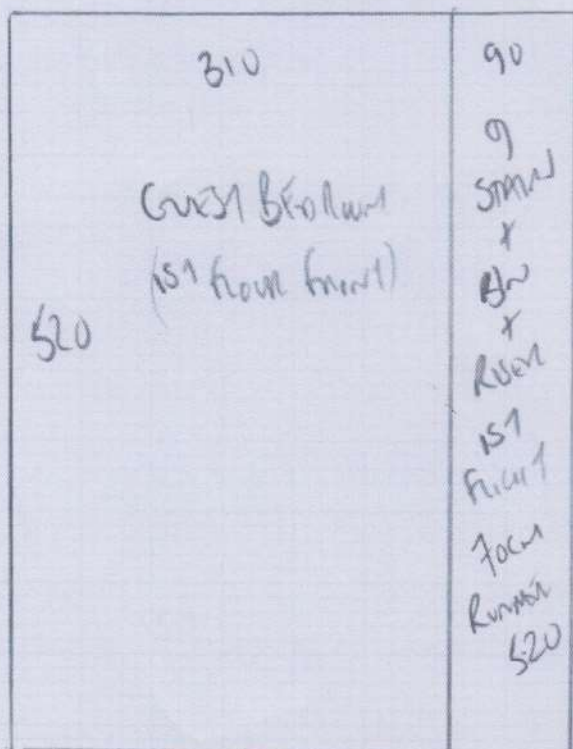 310
GUEST BEDROOM
(1ST FLOOR FRONT)
520
90
9
STAIRS
+
B/N
+
RISER
1ST
FLIGHT
70CM
RUNNER
520